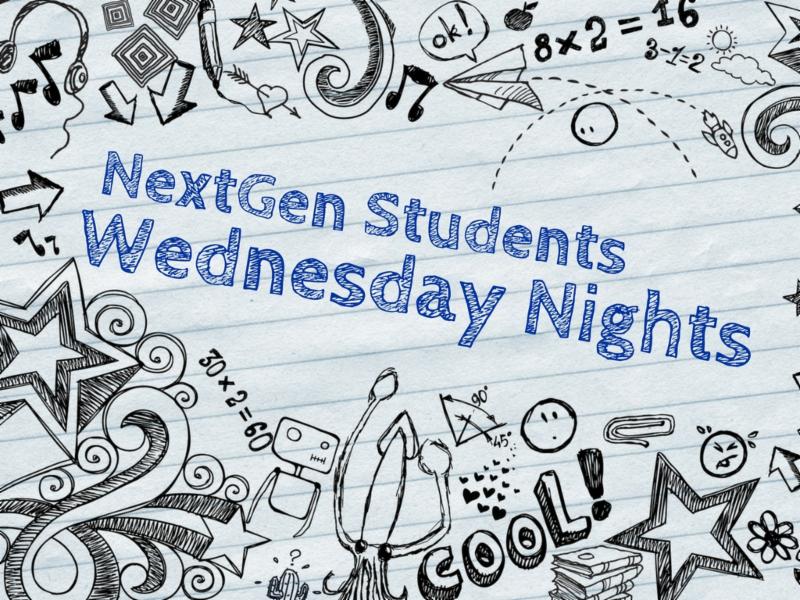 ok!
8×2=16
3-1=2
NextGen Students
Wednesday Nights
30×2=60
90°
45°
?
COOL!